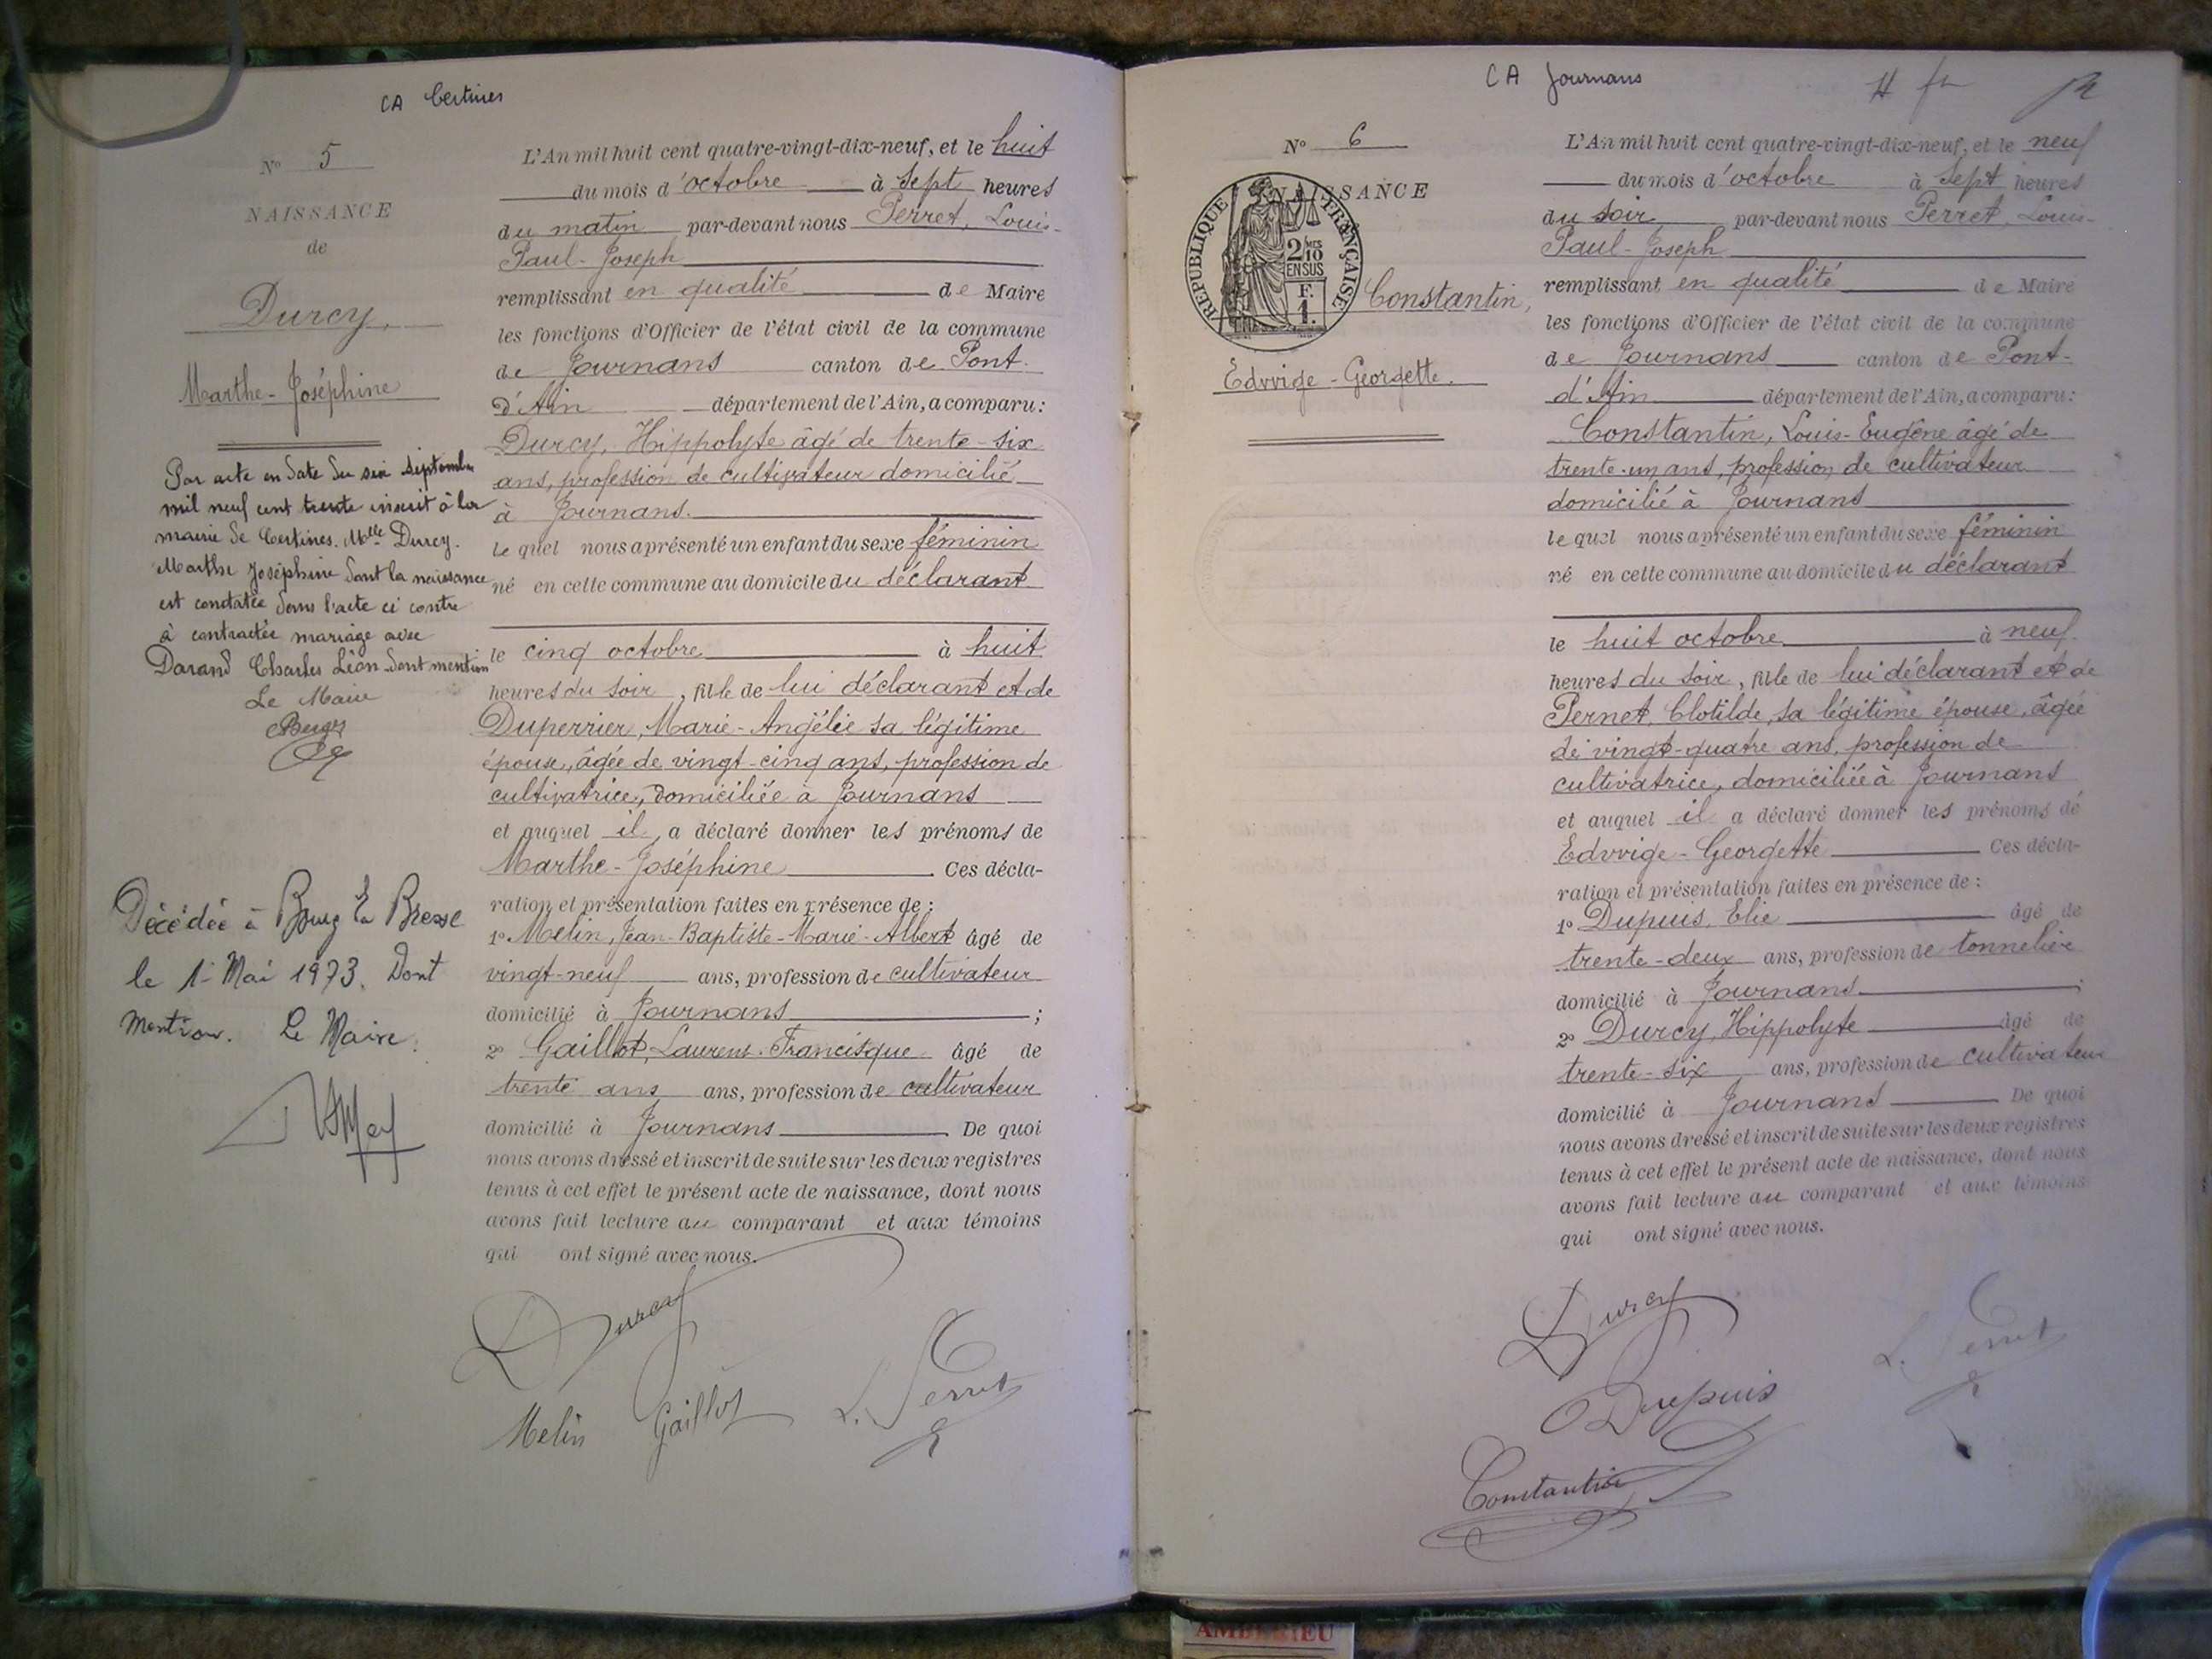 CA Certines
N° 5
NAISSANCE
de
Durcy,
Marthe-Joséphine
Par acte en date du six septembre
mil neuf cent trente inscrit à la
mairie de Certines. Mlle Durcy.
Marthe Joséphine dont la naissance
est constatée dans l'acte ci contre
à contractée mariage avec
Darand Charles Léon. Dont mention
Le Maire
Décédée à Bourg en Bresse
le 1er Mai 1973. Dont
Mention. Le Maire.
L'An mil huit cent quatre-vingt-dix-neuf, et le huit
du mois d'octobre à sept heures
du matin par-devant nous Perret, Louis-
Paul-Joseph
remplissant en qualité de Maire
les fonctions d'Officier de l'état civil de la commune
de Journans canton de Pont-
d'Ain département de l'Ain, a comparu:
Durcy, Hippolyte âgé de trente-six
ans, profession de cultivateur domicilié
à Journans.
le quel nous a présenté un enfant du sexe féminin
né en cette commune au domicile du déclarant
le cinq octobre à huit
heures du soir, fille de lui déclarant et de
Duperrier, Marie-Angélie sa légitime
épouse, âgée de vingt-cinq ans, profession de
cultivatrice, domiciliée à Journans
et auquel il a déclaré donner les prénoms de
Marthe-Joséphine. Ces décla-
ration et présentation faites en présence de:
1° Melin, Jean-Baptiste-Marie-Albert âgé de
vingt-neuf ans, profession de cultivateur
domicilié à Journans;
2° Gaillot, Laurent-Francisque âgé de
trente ans ans, profession de cultivateur
domicilié à Journans. De quoi
nous avons dressé et inscrit de suite sur les deux registres
tenus à cet effet le présent acte de naissance, dont nous
avons fait lecture au comparant et aux témoins
qui ont signé avec nous.
Durcy
Melin Gaillot L. Perret
CA Journans
N° 6
NAISSANCE
RÉPUBLIQUE FRANÇAISE
2/10 MES
EN SUS
F.
1.
Constantin,
Edvvige-Georgette.
L'An mil huit cent quatre-vingt-dix-neuf, et le neuf
du mois d'octobre à sept heures
du soir par-devant nous Perret, Louis-
Paul-Joseph
remplissant en qualité de Maire
les fonctions d'Officier de l'état civil de la commune
de Journans canton de Pont-
d'Ain département de l'Ain, a comparu:
Constantin, Louis-Eugène âgé de
trente-un ans, profession de cultivateur
domicilié à Journans
le quel nous a présenté un enfant du sexe féminin
né en cette commune au domicile du déclarant
le huit octobre à neuf
heures du soir, fille de lui déclarant et de
Pernet, Clotilde, sa légitime épouse, âgée
de vingt-quatre ans, profession de
cultivatrice, domiciliée à Journans
et auquel il a déclaré donner les prénoms de
Edvvige-Georgette Ces décla-
ration et présentation faites en présence de:
1° Dupuis, Elie âgé de
trente-deux ans, profession de tonnelier
domicilié à Journans;
2° Durcy, Hippolyte âgé de
trente-six ans, profession de cultivateur
domicilié à Journans De quoi
nous avons dressé et inscrit de suite sur les deux registres
tenus à cet effet le présent acte de naissance, dont nous
avons fait lecture au comparant et aux témoins
qui ont signé avec nous.
Durcy
L. Perret
Dupuis
Constantin
AMBERIEU